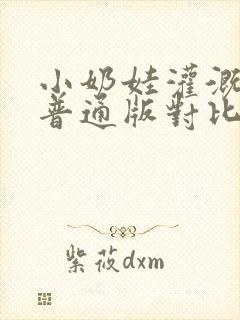 小奶娃灌溉
普通版對比
紫莜dxm